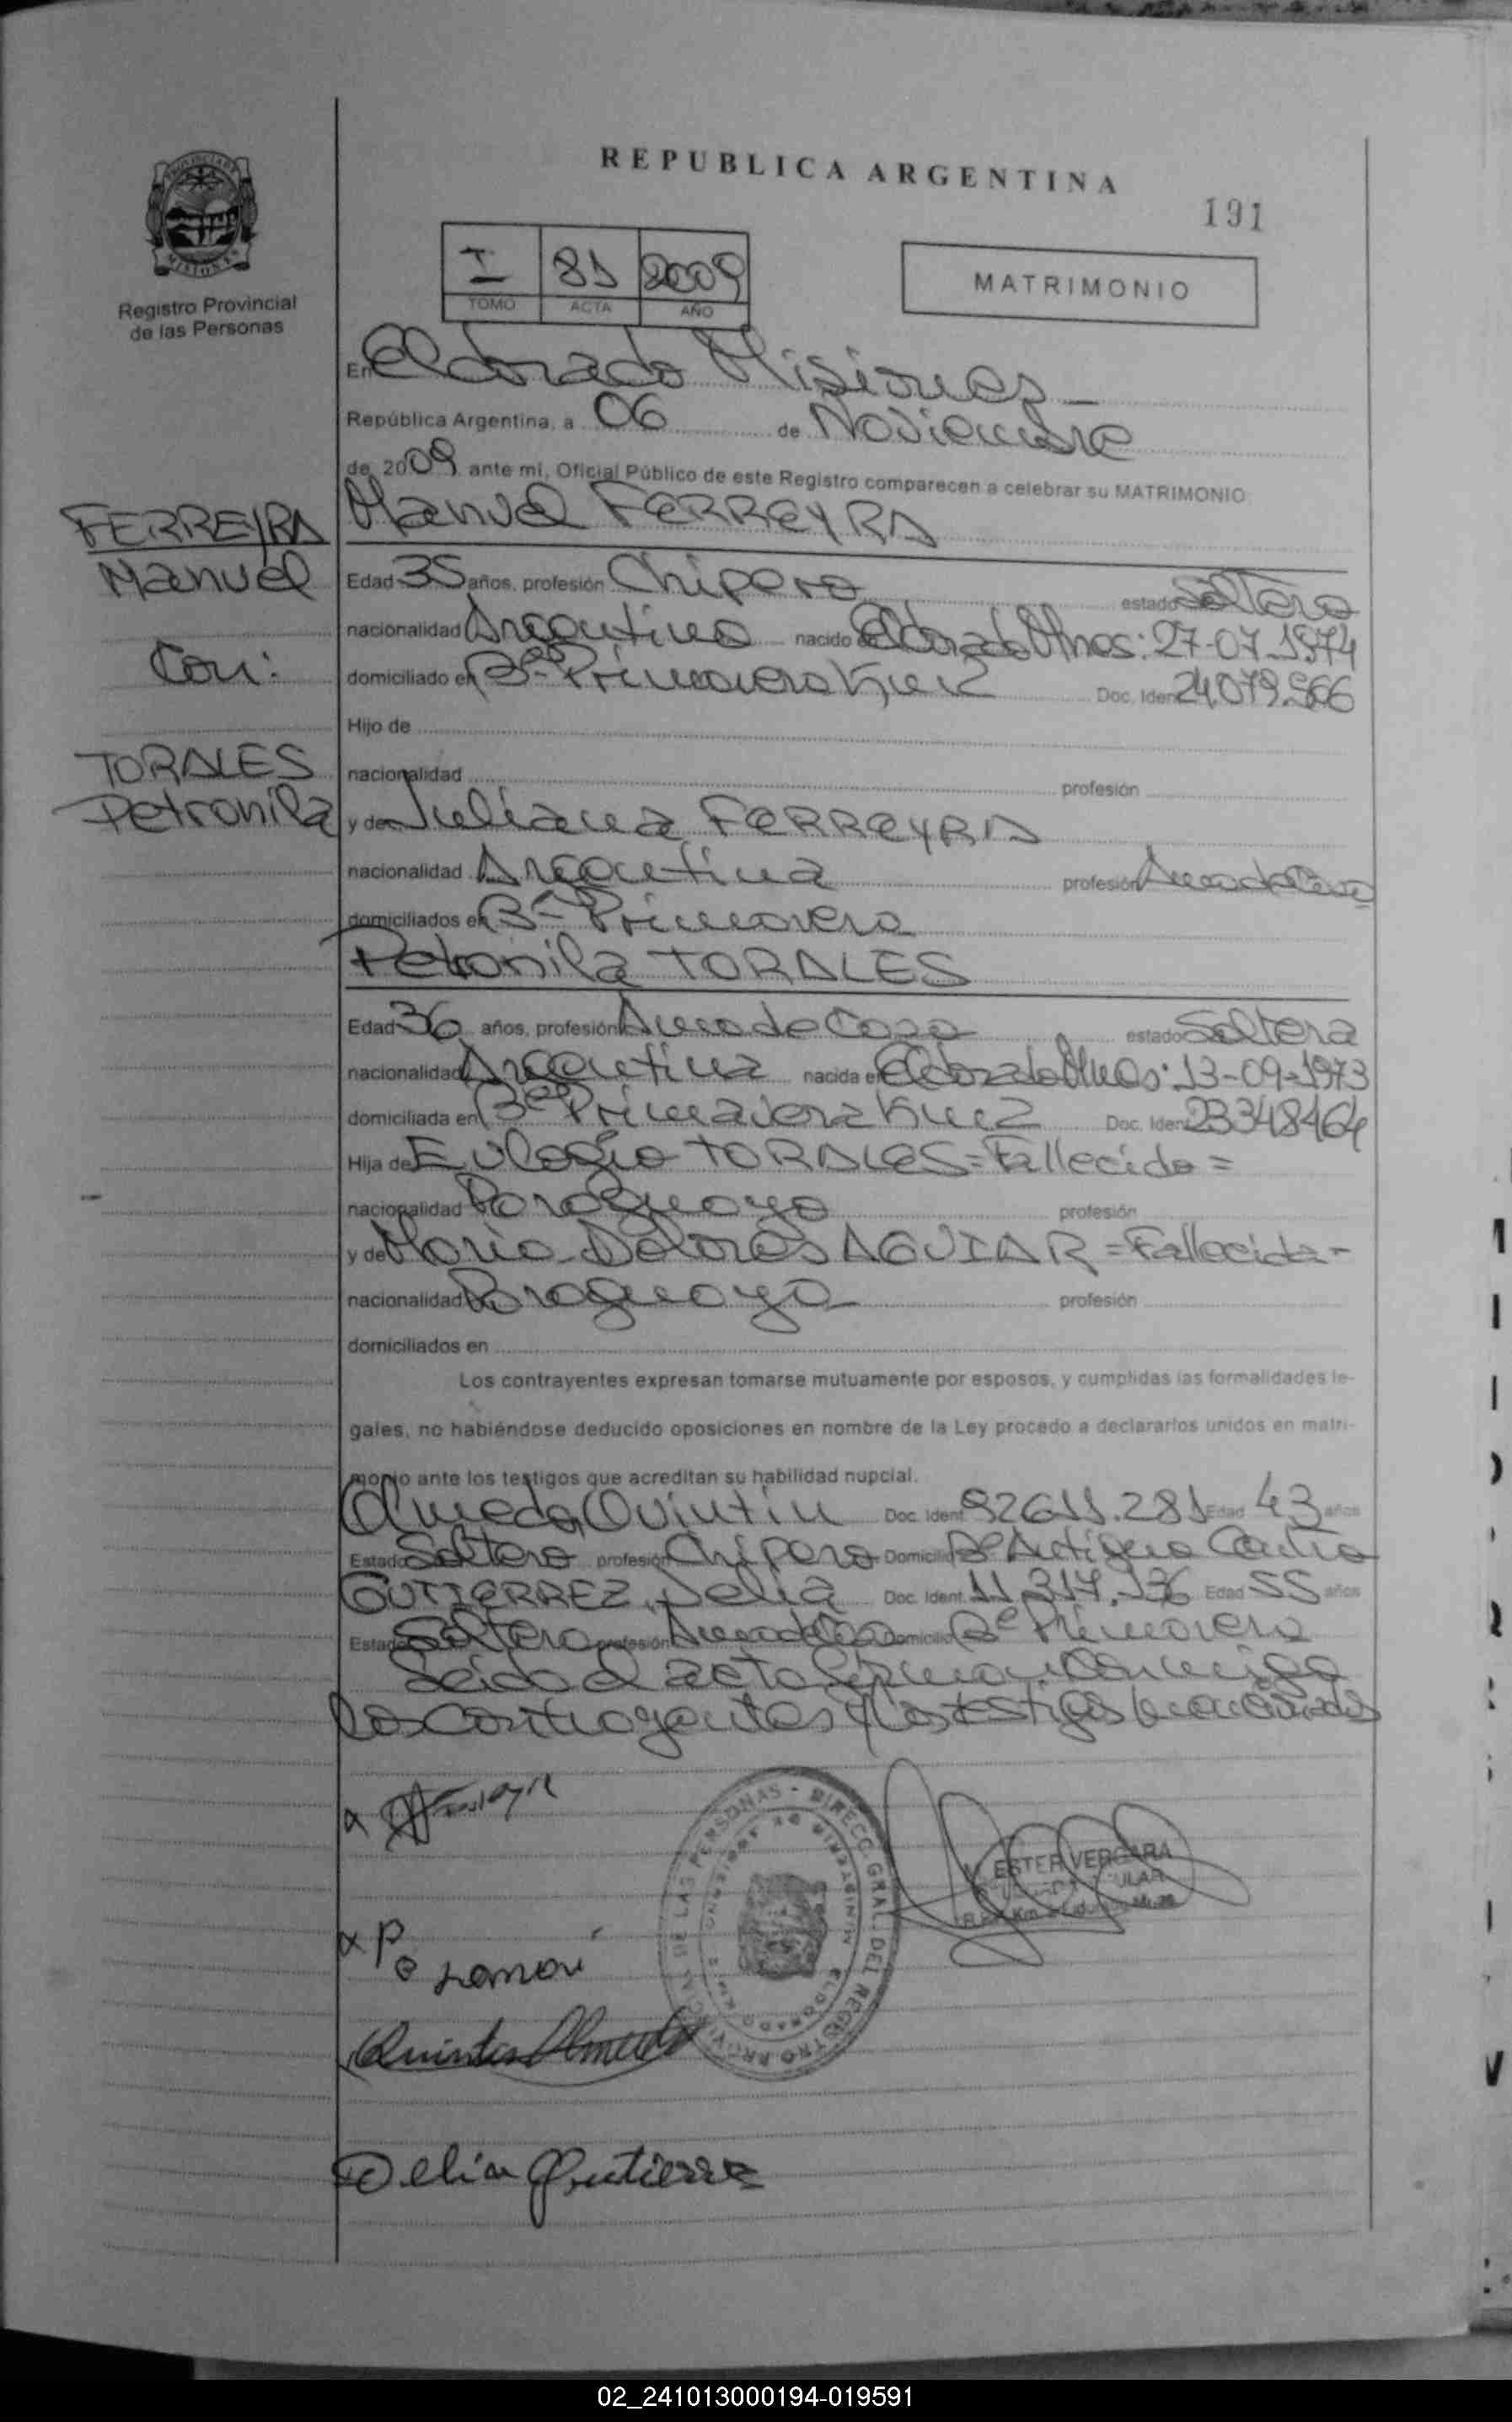 REPUBLICA ARGENTINA
191
MISIONES
Registro Provincial
de las Personas
I 81 2009
TOMO ACTA AÑO
MATRIMONIO
En Eldorado Misiones
República Argentina, a 06 de Noviembre
de 2009 ante mi, Oficial Público de este Registro comparecen a celebrar su MATRIMONIO:
FERREYRA
Manuel
Con:
TORALES
Petronila
Manuel FERREYRA
Edad 35 años, profesión Chipero estado Soltero
nacionalidad Argentino nacido en Eldorado Mnes: 27-07-1974
domiciliado en Bº Primavera Km 2 Doc. Iden 24.079.966
Hijo de
nacionalidad profesión
y de Juliana FERREYRA
nacionalidad Argentina profesión Ama de Casa
domiciliados en Bº Primavera
Petronila TORALES
Edad 36 años, profesión Ama de Casa estado Soltera
nacionalidad Argentina nacida en Eldorado Mnes: 13-09-1973
domiciliada en Bº Primavera Km 2 Doc. Iden 23348464
Hija de Eulogio TORALES=Fallecido=
nacionalidad Paraguayo profesión
y de Maria Dolores AGUIAR=Fallecida-
nacionalidad Paraguaya profesión
domiciliados en
Los contrayentes expresan tomarse mutuamente por esposos, y cumplidas las formalidades le-
gales, no habiéndose deducido oposiciones en nombre de la Ley procedo a declararlos unidos en matri-
monio ante los testigos que acreditan su habilidad nupcial.
Olmedo, Quintin Doc. Ident. 92611.281 Edad 43 años
Estado Soltero profesión Chipero Domicilio Bº Centro
GUTIERREZ, Delia Doc. Ident. 11.317.136 Edad 55 años
Estado Soltera profesión Ama de Casa Domicilio Bº Primavera
Leido el acta firman conmigo
los contrayentes y los testigos mencionados
DIRECC. GRAL. DEL REGISTRO PROVINCIAL DE LAS PERSONAS -
ELDORADO KM 2
ESTER VERGARA
Quintin Olmedo
Delia Gutierrez
02_241013000194-019591